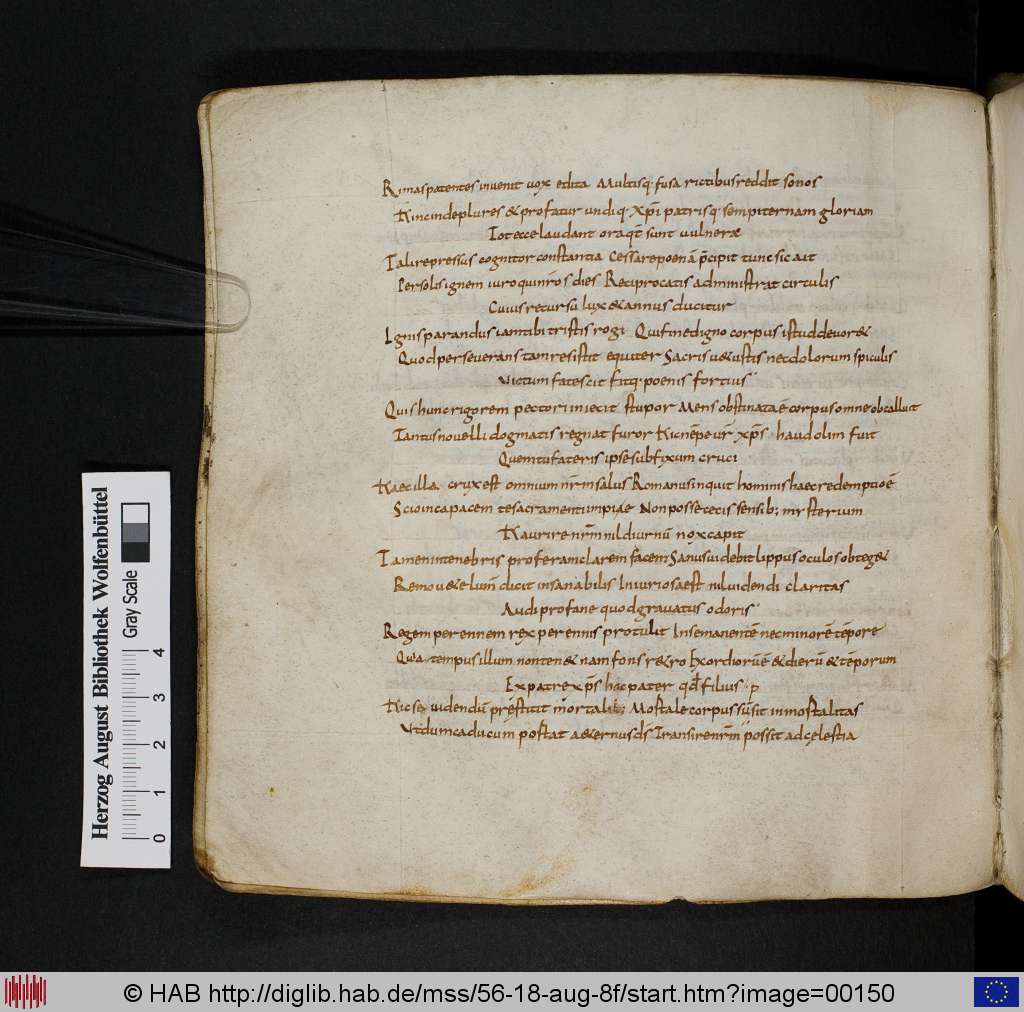 Rimas patentes invenit vox edita Multisq; fusa rictibus reddit sonos
Hinc inde plures & profatur undiq; xp̄i patrisq; sempiternam gloriam
Tot ecce laudant ora qt̄ sunt vulnera
Tali repressus cognitor constantia Cessare poenā p̄cipit tunc sic ait
Per solis ignem iuro qui nr̄os dies Reciprocatis administrat circulis
Cuius recursū lux & annus ducitur
Ignis parandus iam tibi tristis rogi Qui fine digno corpus istud devor&
Quod perseverans tam resistit equiter Sacris v&ustis nec dolorum spiculis
Victum fatescit fitq; poenis fortius
Quis hunc rigorem pectori iniecit stupor Mens obstinata ē corpus omne obcalluit
Tantus novelli dogmatis regnat furor Hic nēpe ur̄ xp̄s haud olim fuit
Quem tu fateris ipse subfixum cruci
Haec illa crux est omnium nr̄m salus Romanus inquit hominis haec redemptio ē
Scio incapacem te sacramenti impiae Non posse cecis sensib; mysterium
Haurire nr̄m nil diurnū nox capit
Tamen in tenebris proferam claram facem Sanus videbit lippus oculos obteg&
Remov&e lumē dicit insanabilis Iniuriosa est nil videndi claritas
Audi profane quod gravatus oderis
Regem perennem rex perennis protulit In se manentē nec minorē tēpore
Quia tempus illum non ten& nam fons r&ro Exordiorū ē & dierū & tēporum
Ex patre xp̄s hoc pater qd̄ filius p
Hic se videndū pręstitit mortalib; Mortale corpus sūsit inmortalitas
Ut dum caducum portat a&ernus ds̄ Transire nr̄m possit ad cęlestia
Herzog August Bibliothek Wolfenbüttel
Gray Scale
0 1 2 3 4
© HAB http://diglib.hab.de/mss/56-18-aug-8f/start.htm?image=00150